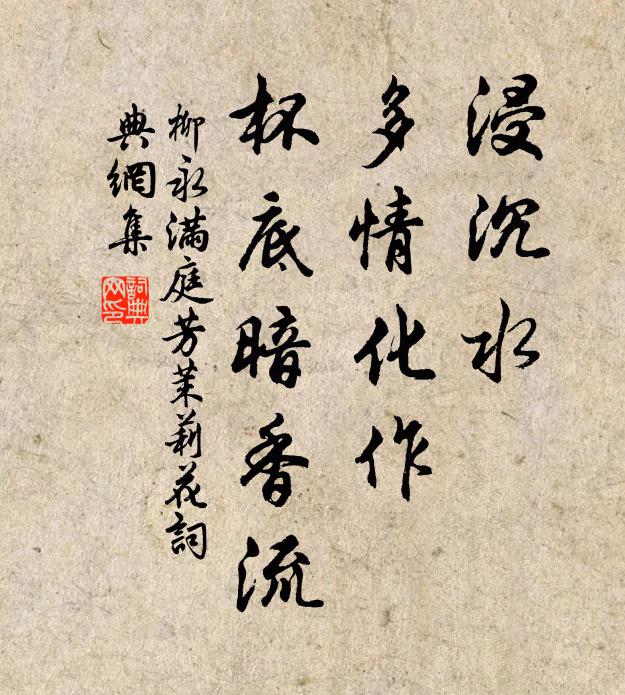 浸沉水
多情化作
杯底暗香流
柳永满庭芳茉莉花詞
典網集
詞典網印